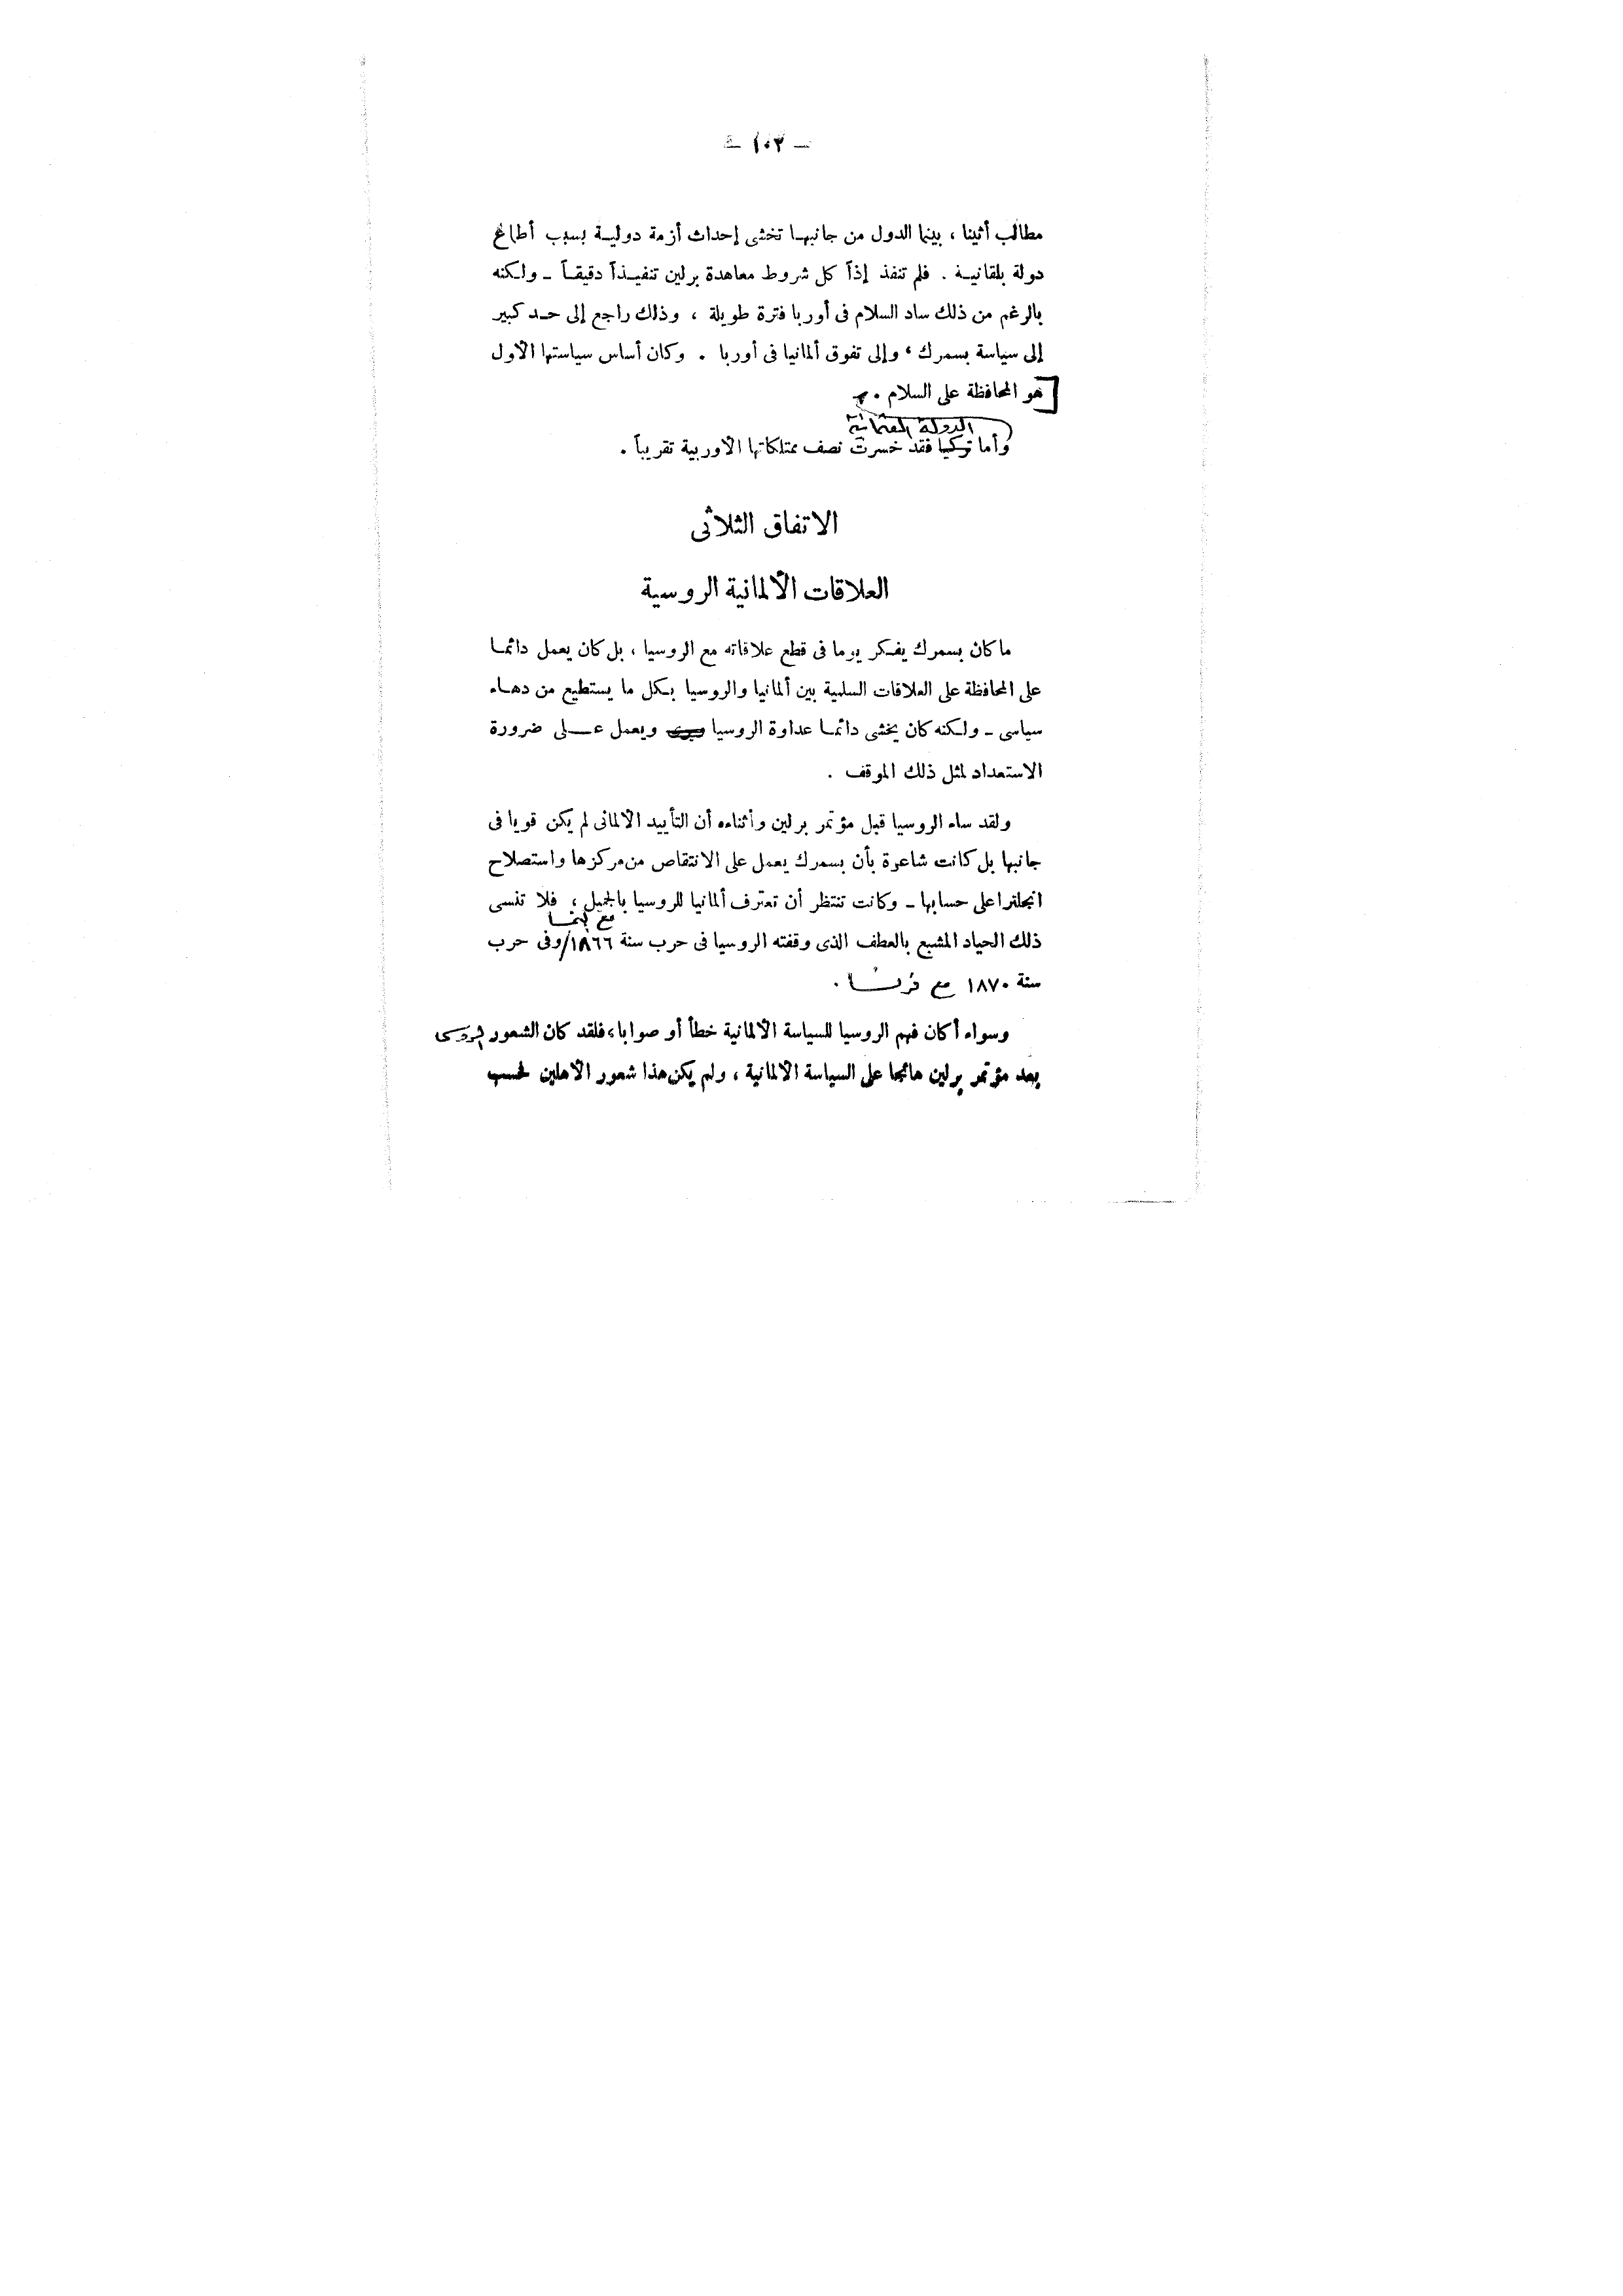 — ١٠٢ —
مطالب أثينا ، بينما الدول من جانبها تخشى إحداث أزمة دولية بسبب أطماع
دولة بلقانية . فلم تنفذ إذاً كل شروط معاهدة برلين تنفيذاً دقيقاً - ولكنه
بالرغم من ذلك ساد السلام فى أوربا فترة طويلة ، وذلك راجع إلى حد كبير
إلى سياسة بسمرك ، وإلى تفوق ألمانيا فى أوربا . وكان أساس سياستها الأول
هو المحافظة على السلام .
الدولة العثمانية
وأما تركيا فقد خسرت نصف ممتلكاتها الأوربية تقريباً .
الاتفاق الثلاثى
العلاقات الألمانية الروسية
ما كان بسمرك يفكر يوما فى قطع علاقاته مع الروسيا ، بل كان يعمل دائما
على المحافظة على العلاقات السلمية بين ألمانيا والروسيا بكل ما يستطيع من دهاء
سياسى - ولكنه كان يخشى دائما عداوة الروسيا ويعمل على ضرورة
الاستعداد لمثل ذلك الموقف .
ولقد ساء الروسيا قبل مؤتمر برلين وأثناءه أن التأييد الألمانى لم يكن قويا فى
جانبها بل كانت شاعرة بأن بسمرك يعمل على الانتقاص من مركزها واستصلاح
انجلترا على حسابها - وكانت تنتظر أن تعترف ألمانيا للروسيا بالجميل ، فلا تنسى
مع النمسا
ذلك الحياد المشبع بالعطف الذى وقفته الروسيا فى حرب سنة ١٨٦٦/ وفى حرب
سنة ١٨٧٠ مع فرنسا .
وسواء أكان فهم الروسيا للسياسة الألمانية خطأ أو صوابا، فلقد كان الشعور الروسى
بعد مؤتمر برلين هائجا على السياسة الألمانية ، ولم يكن هذا شعور الأهلين فحسب